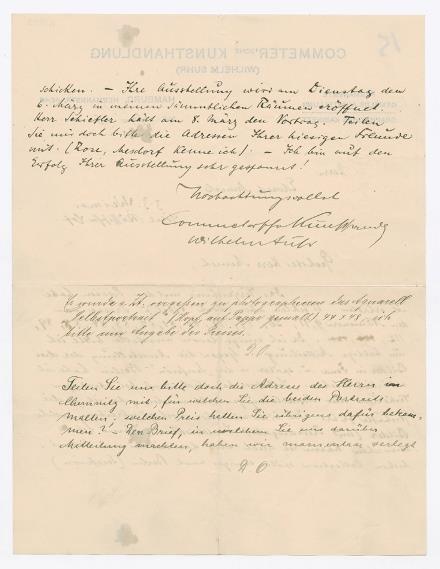 schicken. – Ihre Ausstellung wird am Dienstag den
6. März in meinen sämmtlichen Räumen eröffnet.
Herr Schiefler hält am 8. März den Vortrag. Teilen
Sie mir doch bitte die Adressen Ihrer hiesigen Freunde
mit. (Rose, kenne ich) – Ich bin auf den
Erfolg Ihrer Ausstellung sehr gespannt!
Hochachtungsvollst
Commetersche Kunsthandlg
Wilhelm Suhr
Es wurde s. Zt. vergessen zu photographieren das Aquarell
Selbstportrait (Kopf, auf Pappe gemalt) 44 x 48. ich
bitte um Angabe des Preises.
D. O
Teilen Sie uns bitte doch die Adresse des Herrn in
Chemnitz mit, für welchen Sie die beiden Portraits
malten. welchen Preis hatten Sie übrigens dafür bekom-
men? – Den Brief, in welchem Sie uns darüber
Mitteilung machten, haben wir momentan verlegt
D O